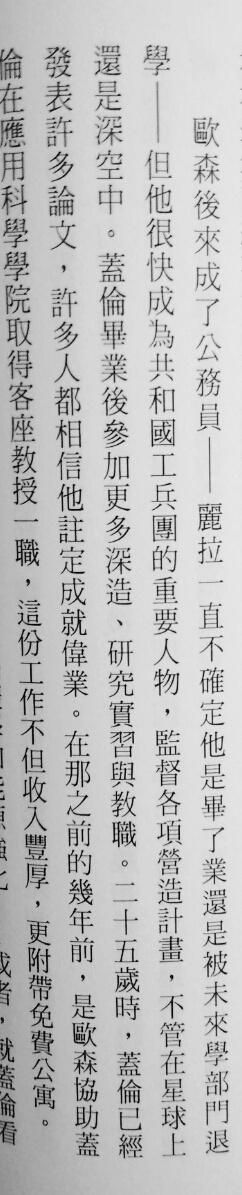 歐森後來成了公務員——麗拉一直不確定他是畢了業還是被未來學部門退
學——但他很快成為共和國工兵團的重要人物，監督各項營造計畫，不管在星球上
還是深空中。蓋倫畢業後參加更多深造、研究實習與教職。二十五歲時，蓋倫已經
發表許多論文，許多人都相信他註定成就偉業。在那之前的幾年前，是歐森協助蓋
倫在應用科學學院取得客座教授一職，這份工作不但收入豐厚，更附帶免費公寓。
或者，就蓋倫看